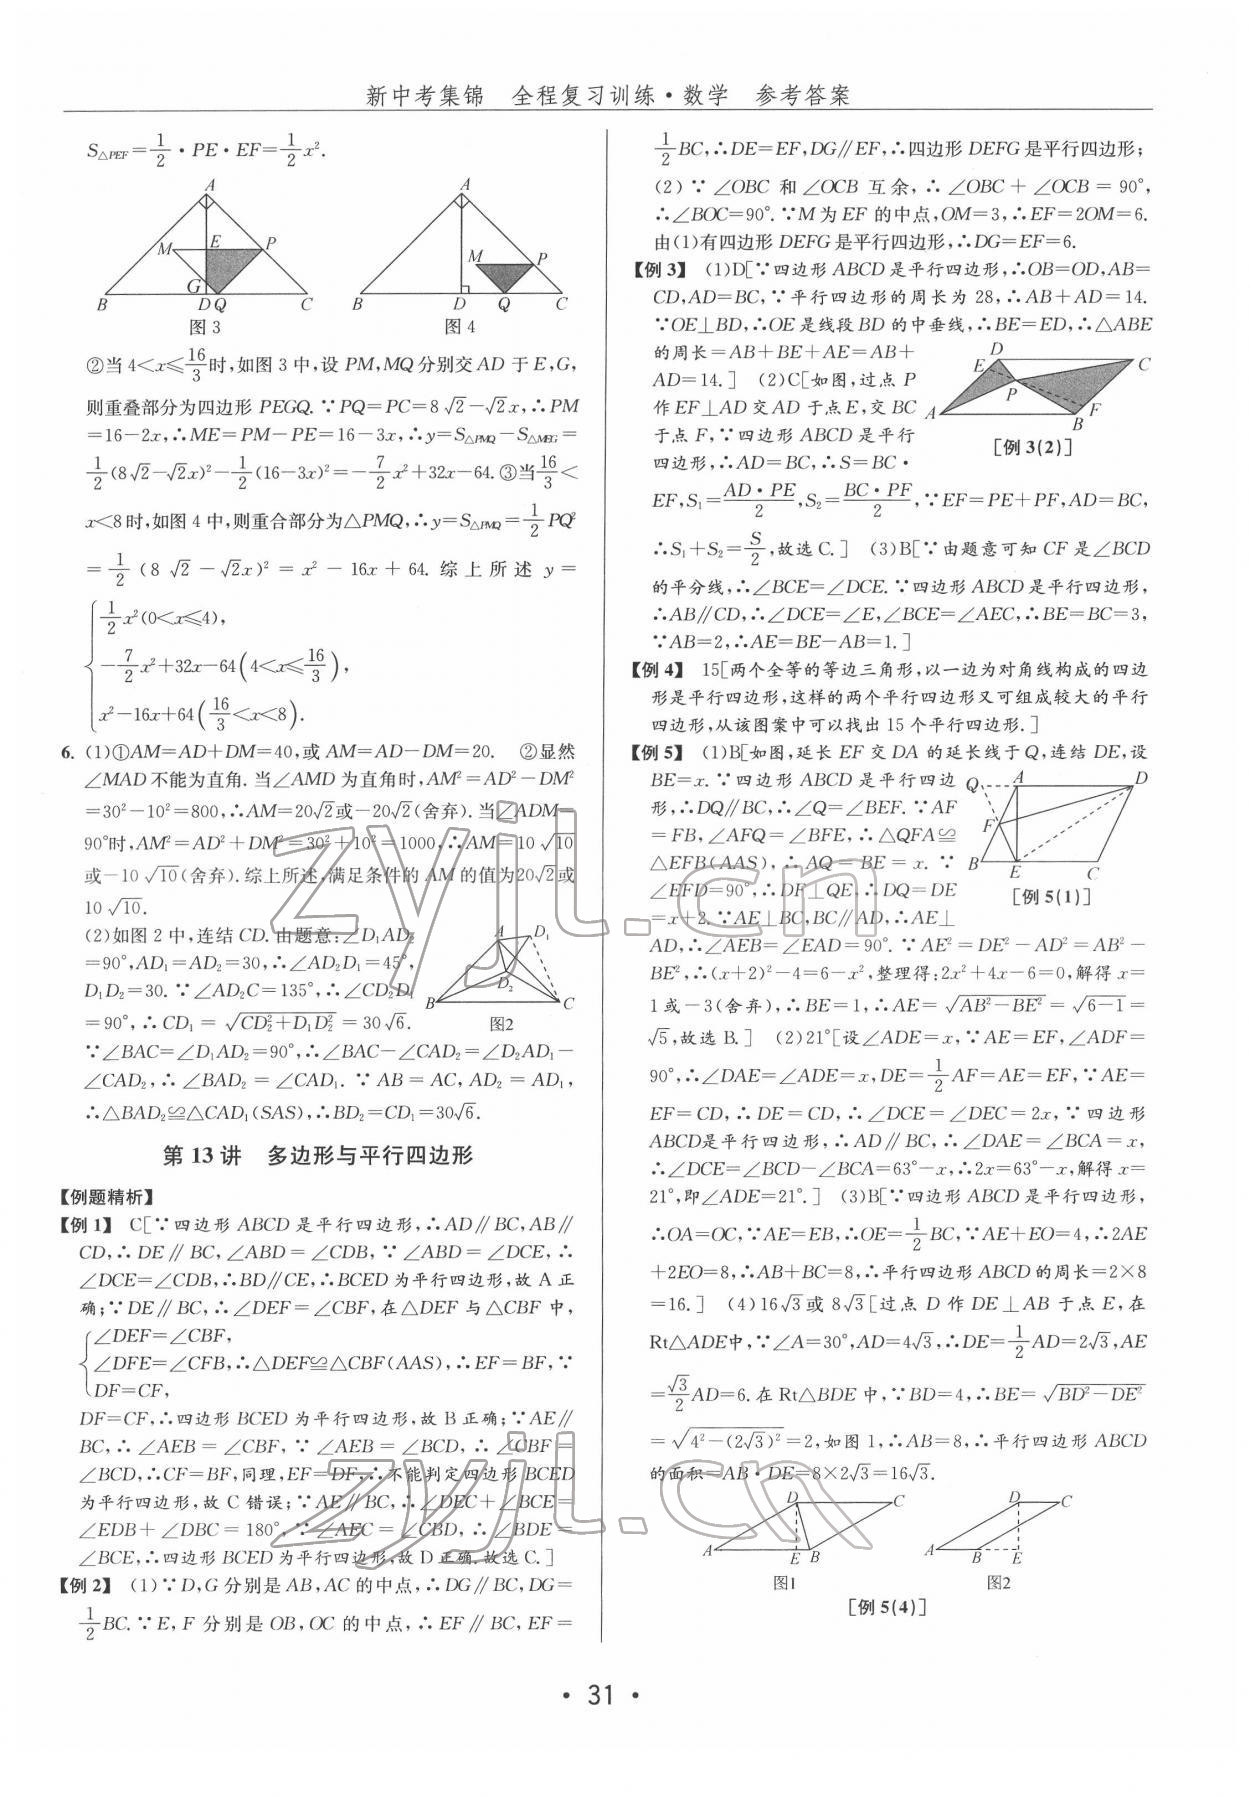 新中考集锦　全程复习训练·数学　参考答案
S△PEF=1/2·PE·EF=1/2x².
A
M E P
G
B D Q C
图3
A
M P
B D Q C
图4
②当4<x≤16/3时,如图3中,设PM,MQ分别交AD于E,G,
则重叠部分为四边形PEGQ.∵PQ=PC=8√2-√2x,∴PM
=16-2x,∴ME=PM-PE=16-3x,∴y=S△PMQ-S△MEG=
1/2(8√2-√2x)²-1/2(16-3x)²=-7/2x²+32x-64.③当16/3<
x<8时,如图4中,则重合部分为△PMQ,∴y=S△PMQ=1/2PQ²
=1/2(8√2-√2x)²=x²-16x+64.综上所述y=
1/2x²(0<x≤4),
-7/2x²+32x-64(4<x≤16/3),
x²-16x+64(16/3<x<8).
6. (1)①AM=AD+DM=40,或AM=AD-DM=20.　②显然
∠MAD不能为直角.当∠AMD为直角时,AM²=AD²-DM²
=30²-10²=800,∴AM=20√2或-20√2(舍弃).当∠ADM=
90°时,AM²=AD²+DM²=30²+10²=1000,∴AM=10√10
或-10√10(舍弃).综上所述,满足条件的AM的值为20√2或
10√10.
(2)如图2中,连结CD.由题意:∠D₁AD₂
=90°,AD₁=AD₂=30,∴∠AD₂D₁=45°,
D₁D₂=30.∵∠AD₂C=135°,∴∠CD₂D₁
=90°,∴CD₁=√(CD₂²+D₁D₂²)=30√6.
A D₁
D₂
B C
图2
∵∠BAC=∠D₁AD₂=90°,∴∠BAC-∠CAD₂=∠D₂AD₁-
∠CAD₂,∴∠BAD₂=∠CAD₁.∵AB=AC,AD₂=AD₁,
∴△BAD₂≌△CAD₁(SAS),∴BD₂=CD₁=30√6.
第13讲　多边形与平行四边形
【例题精析】
【例1】 C[∵四边形ABCD是平行四边形,∴AD∥BC,AB∥
CD,∴DE∥BC,∠ABD=∠CDB,∵∠ABD=∠DCE,∴
∠DCE=∠CDB,∴BD∥CE,∴BCED为平行四边形,故A正
确;∵DE∥BC,∴∠DEF=∠CBF,在△DEF与△CBF中,
∠DEF=∠CBF,
∠DFE=∠CFB,∴△DEF≌△CBF(AAS),∴EF=BF,∵
DF=CF,
DF=CF,∴四边形BCED为平行四边形,故B正确;∵AE∥
BC,∴∠AEB=∠CBF,∵∠AEB=∠BCD,∴∠CBF=
∠BCD,∴CF=BF,同理,EF=DF,∴不能判定四边形BCED
为平行四边形,故C错误;∵AE∥BC,∴∠DEC+∠BCE=
∠EDB+∠DBC=180°,∵∠AEC=∠CBD,∴∠BDE=
∠BCE,∴四边形BCED为平行四边形,故D正确.故选C.]
【例2】 (1)∵D,G分别是AB,AC的中点,∴DG∥BC,DG=
1/2BC.∵E,F分别是OB,OC的中点,∴EF∥BC,EF=
1/2BC,∴DE=EF,DG∥EF,∴四边形DEFG是平行四边形;
(2)∵∠OBC和∠OCB互余,∴∠OBC+∠OCB=90°,
∴∠BOC=90°.∵M为EF的中点,OM=3,∴EF=2OM=6.
由(1)有四边形DEFG是平行四边形,∴DG=EF=6.
【例3】 (1)D[∵四边形ABCD是平行四边形,∴OB=OD,AB=
CD,AD=BC,∵平行四边形的周长为28,∴AB+AD=14.
∵OE⊥BD,∴OE是线段BD的中垂线,∴BE=ED,∴△ABE
的周长=AB+BE+AE=AB+
AD=14.]　(2)C[如图,过点P
作EF⊥AD交AD于点E,交BC
于点F,∵四边形ABCD是平行
四边形,∴AD=BC,∴S=BC·
D C
E
P
F
A B
[例3(2)]
EF,S₁=AD·PE/2,S₂=BC·PF/2,∵EF=PE+PF,AD=BC,
∴S₁+S₂=S/2,故选C.]　(3)B[∵由题意可知CF是∠BCD
的平分线,∴∠BCE=∠DCE.∵四边形ABCD是平行四边形,
∴AB∥CD,∴∠DCE=∠E,∠BCE=∠AEC,∴BE=BC=3,
∵AB=2,∴AE=BE-AB=1.]
【例4】 15[两个全等的等边三角形,以一边为对角线构成的四边
形是平行四边形,这样的两个平行四边形又可组成较大的平行
四边形,从该图案中可以找出15个平行四边形.]
【例5】 (1)B[如图,延长EF交DA的延长线于Q,连结DE,设
BE=x.∵四边形ABCD是平行四边
形,∴DQ∥BC,∴∠Q=∠BEF.∵AF
=FB,∠AFQ=∠BFE,∴△QFA≌
△EFB(AAS),∴AQ=BE=x.∵
∠EFD=90°,∴DF⊥QE,∴DQ=DE
=x+2.∵AE⊥BC,BC∥AD,∴AE⊥
Q A D
F
B E C
[例5(1)]
AD,∴∠AEB=∠EAD=90°.∵AE²=DE²-AD²=AB²-
BE²,∴(x+2)²-4=6-x²,整理得:2x²+4x-6=0,解得x=
1或-3(舍弃),∴BE=1,∴AE=√(AB²-BE²)=√(6-1)=
√5,故选B.]　(2)21°[设∠ADE=x,∵AE=EF,∠ADF=
90°,∴∠DAE=∠ADE=x,DE=1/2AF=AE=EF,∵AE=
EF=CD,∴DE=CD,∴∠DCE=∠DEC=2x,∵四边形
ABCD是平行四边形,∴AD∥BC,∴∠DAE=∠BCA=x,
∴∠DCE=∠BCD-∠BCA=63°-x,∴2x=63°-x,解得x=
21°,即∠ADE=21°.]　(3)B[∵四边形ABCD是平行四边形,
∴OA=OC,∵AE=EB,∴OE=1/2BC,∵AE+EO=4,∴2AE
+2EO=8,∴AB+BC=8,∴平行四边形ABCD的周长=2×8
=16.]　(4)16√3或8√3[过点D作DE⊥AB于点E,在
Rt△ADE中,∵∠A=30°,AD=4√3,∴DE=1/2AD=2√3,AE
=√3/2AD=6.在Rt△BDE中,∵BD=4,∴BE=√(BD²-DE²)
=√(4²-(2√3)²)=2,如图1,∴AB=8,∴平行四边形ABCD
的面积=AB·DE=8×2√3=16√3.
D C
A E B
图1
D C
A B E
图2
[例5(4)]
· 31 ·
zyjl.cn
zyjl.cn